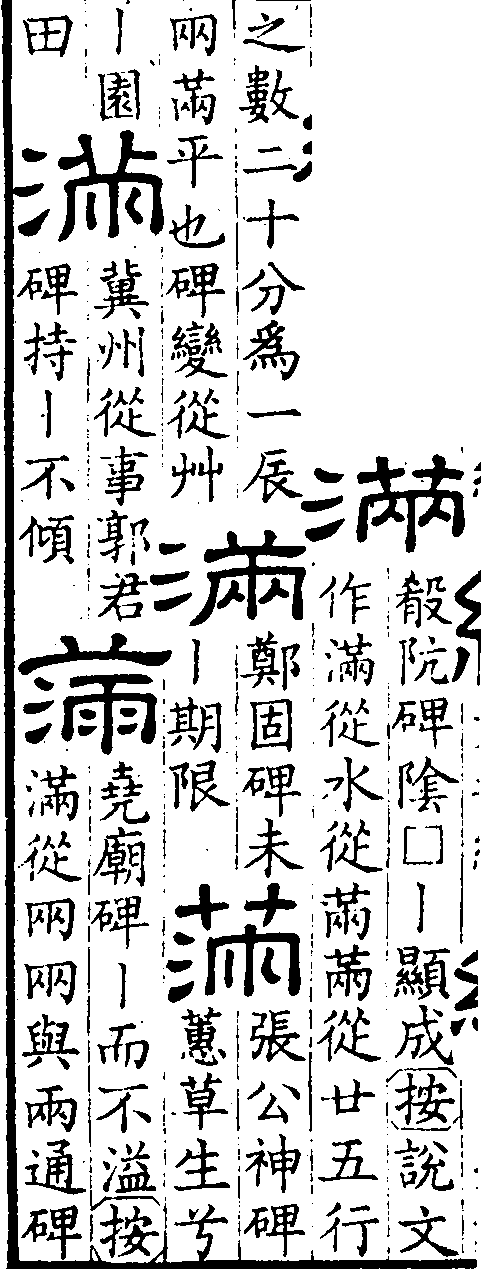 滿
殽阬碑陰□丨顯成按說文
作滿從水從㒼㒼從廿五行
之數二十分爲一辰
㒳㒼平也碑變從艸
滿
鄭固碑未
丨期限
滿
張公神碑
蕙草生兮
丨園
田
滿
冀州從事郭君
碑持丨不傾
滿
堯廟碑丨而不溢按
滿從㒳㒳與兩通碑